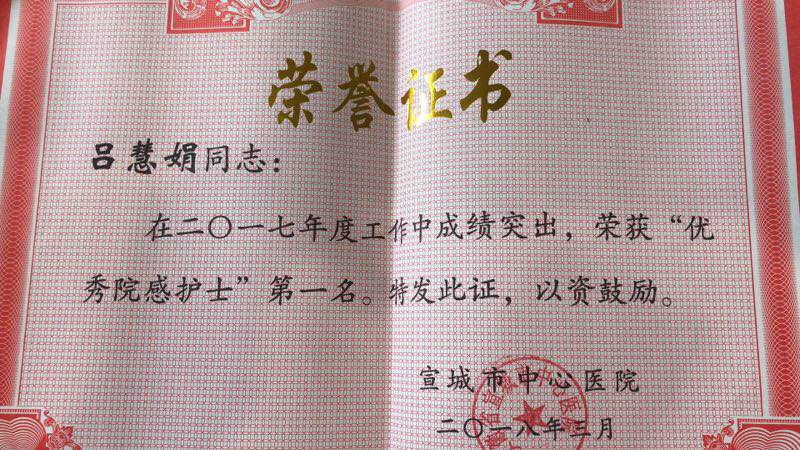 荣誉证书
吕慧娟同志：
在二〇一七年度工作中成绩突出，荣获“优
秀院感护士”第一名。特发此证，以资鼓励。
宣城市中心医院
二〇一八年三月